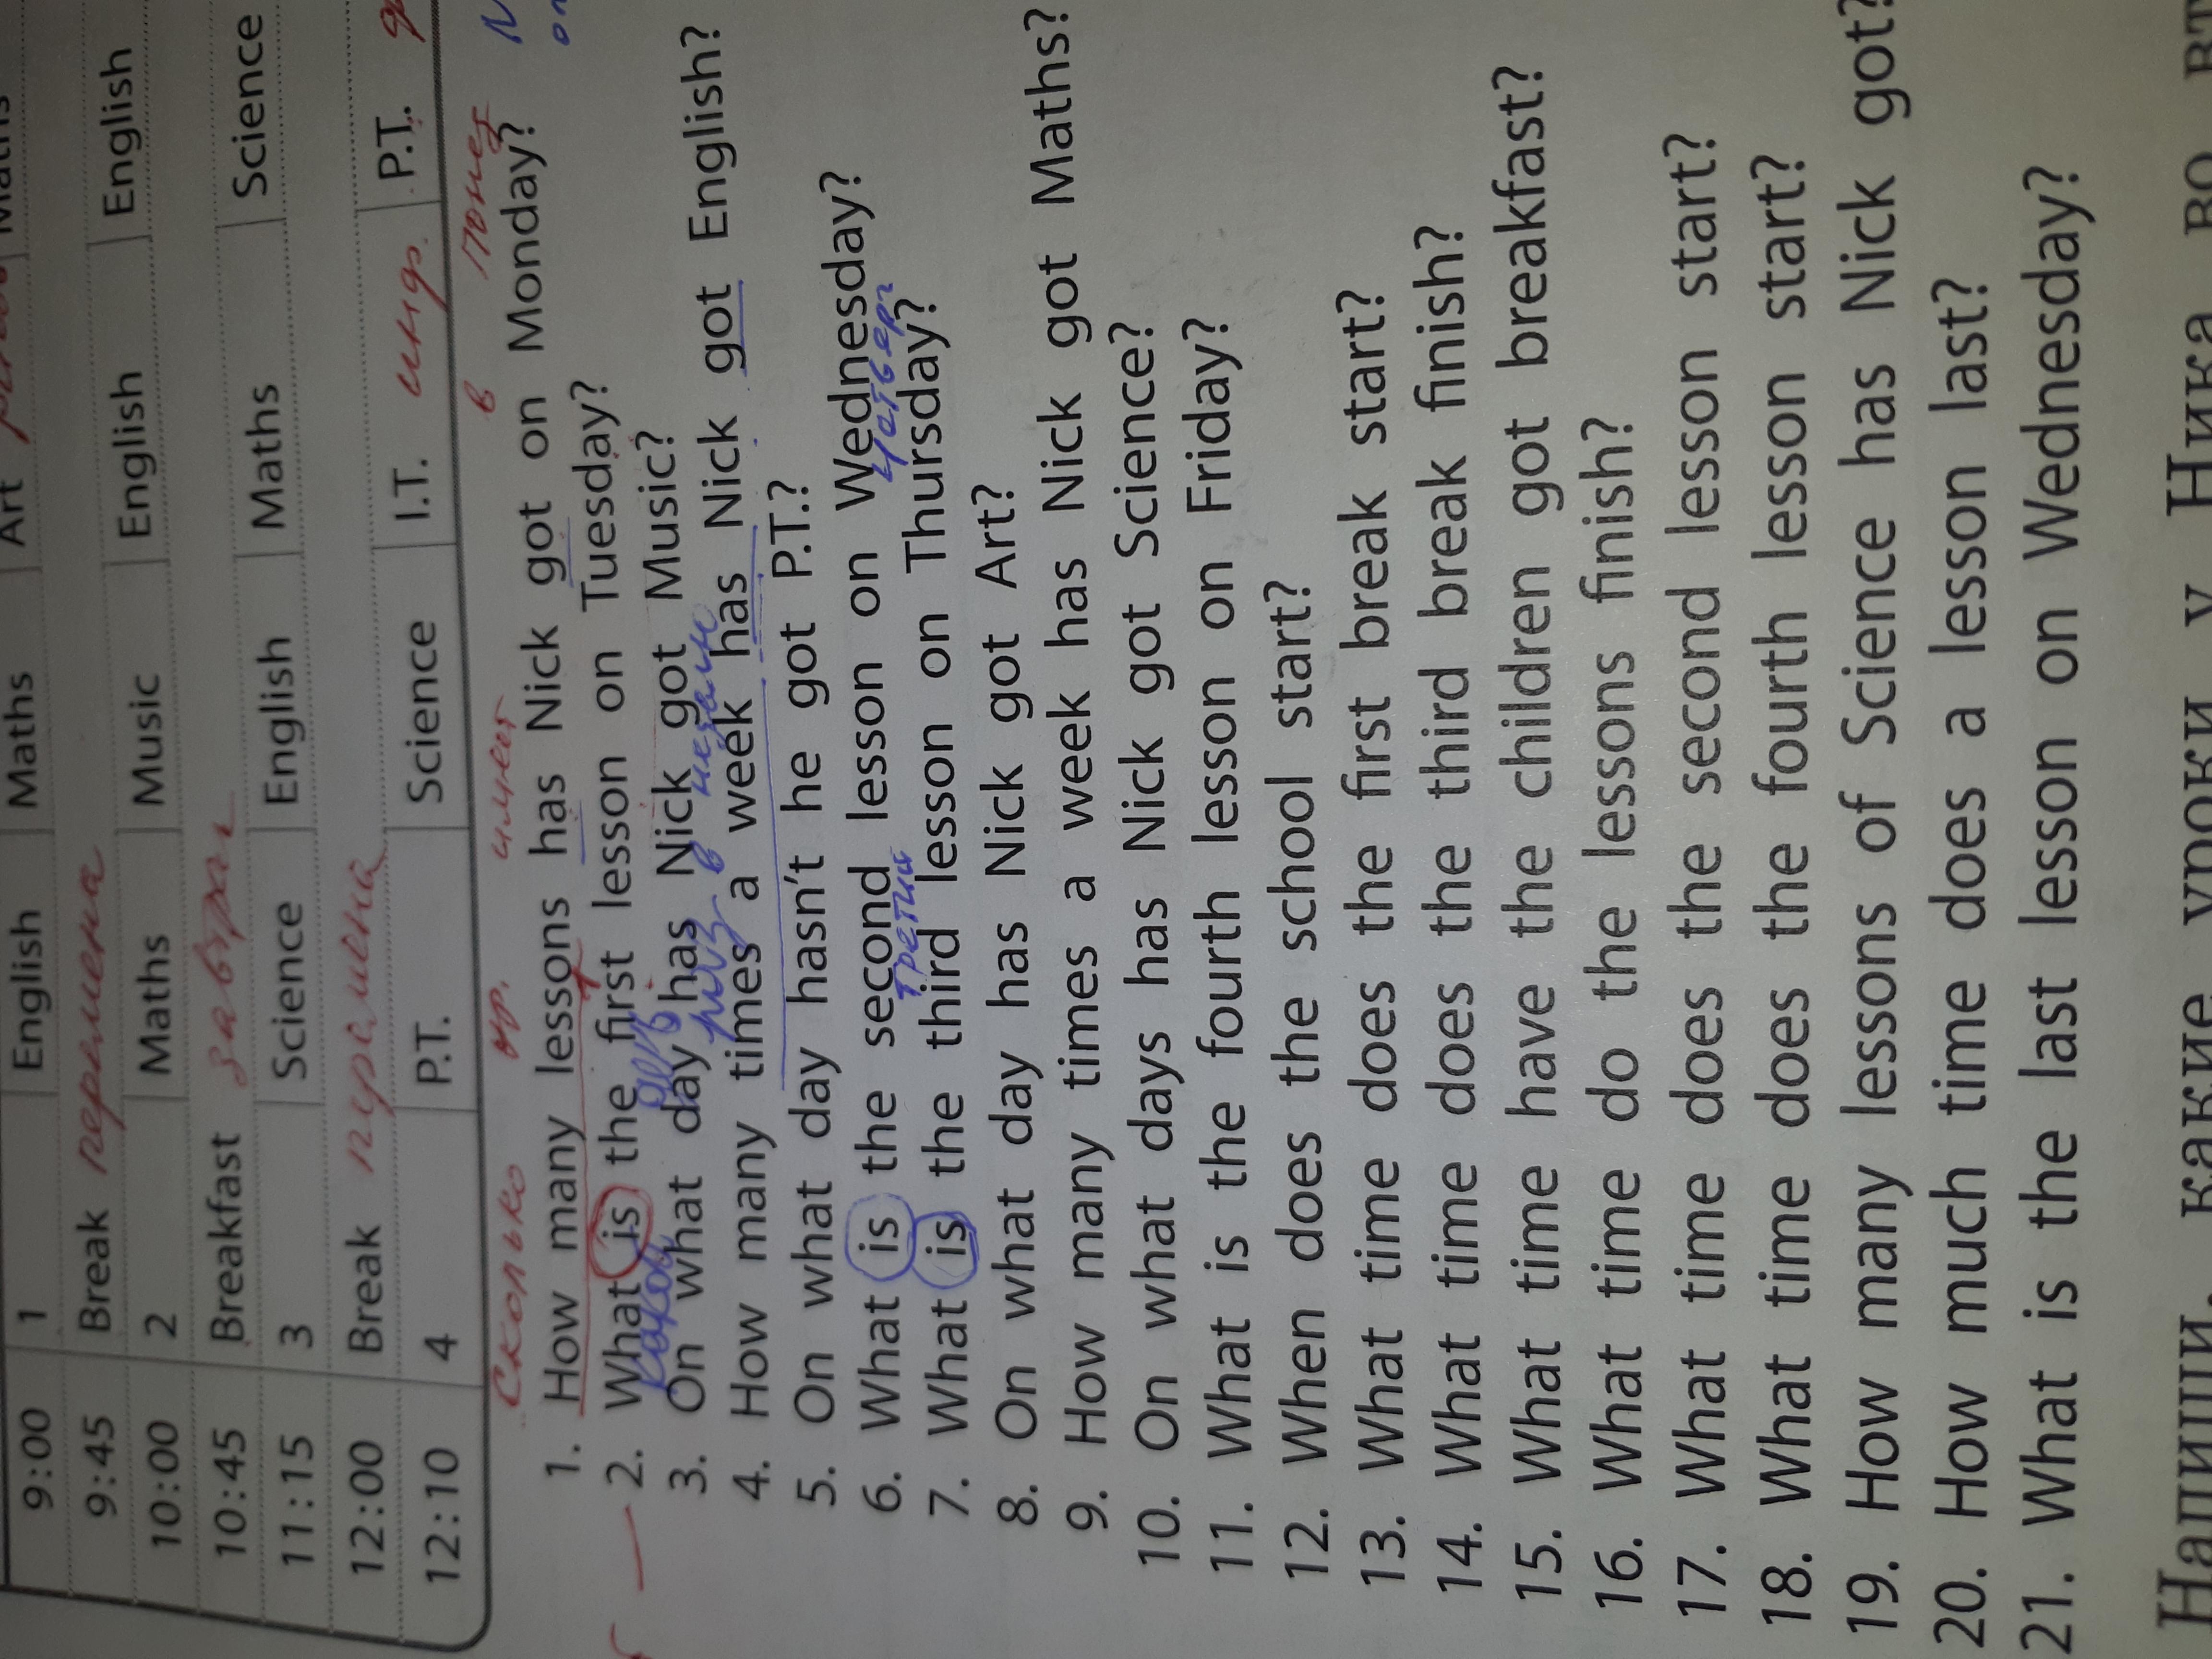 9:00 1 English Maths Art Maths
9:45 Break перемена
10:00 2 Maths Music English English
10:45 Breakfast завтрак
11:15 3 Science English Maths Science
12:00 Break перемена
12:10 4 P.T. Science I.T. P.T.
Сколько ур. имеет в понед
1. How many lessons has Nick got on Monday?
2. What is the first lesson on Tuesday?
3. On what day has Nick got Music?
раз в неделю
4. How many times a week has Nick got English?
5. On what day hasn't he got P.T.?
6. What is the second lesson on Wednesday?
третий четверг
7. What is the third lesson on Thursday?
8. On what day has Nick got Art?
9. How many times a week has Nick got Maths?
10. On what days has Nick got Science?
11. What is the fourth lesson on Friday?
12. When does the school start?
13. What time does the first break start?
14. What time does the third break finish?
15. What time have the children got breakfast?
16. What time do the lessons finish?
17. What time does the second lesson start?
18. What time does the fourth lesson start?
19. How many lessons of Science has Nick got?
20. How much time does a lesson last?
21. What is the last lesson on Wednesday?
Напиши, какие уроки у Ника во